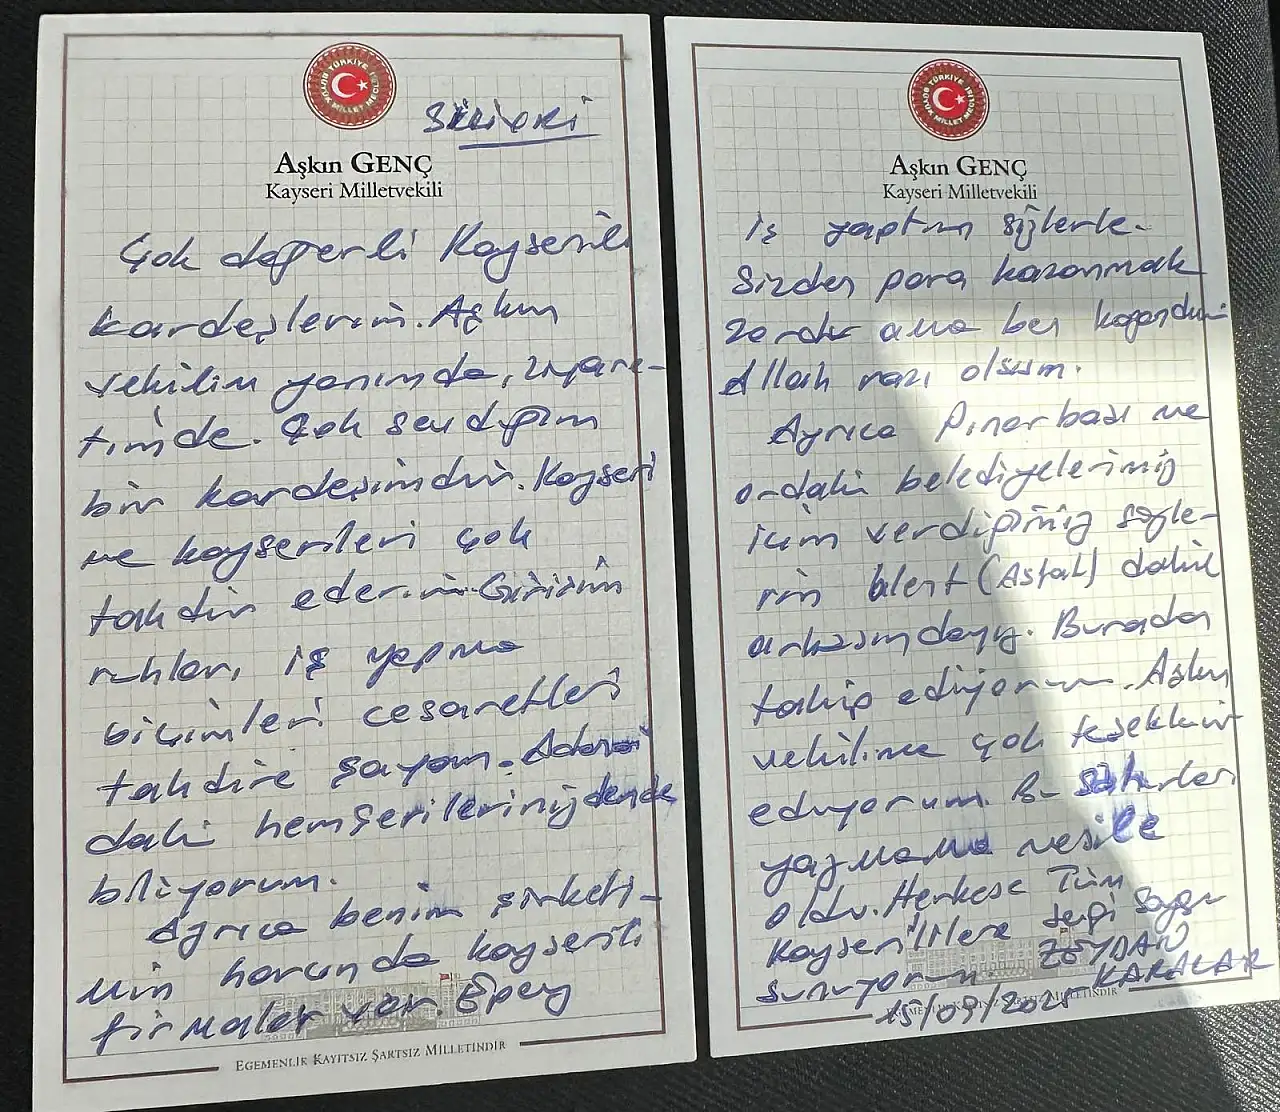 TÜRKİYE BÜYÜK MİLLET MECLİSİ
Silivri
Aşkın GENÇ
Kayseri Milletvekili
Çok değerli Kayserili
kardeşlerim. Aşkın
vekilim yanımda, ziyare-
timde. Çok sevdiğim
bir kardeşimdir. Kayseri
ve kayserileri çok
takdir ederim. Girişim
ruhları, iş yapma
biçimleri cesaretleri
takdire şayan. Adana
daki hemşerilerinizdende
biliyorum.
Ayrıca benim şirketi-
min harcında kayserili
firmalar var. Epey
EGEMENLİK KAYITSIZ ŞARTSIZ MİLLETİNDİR
TÜRKİYE BÜYÜK MİLLET MECLİSİ
Aşkın GENÇ
Kayseri Milletvekili
iş yaptım sizlerle.
Sizden para kazanmak
zordur ama ben kazandım
Allah razı olsun.
Ayrıca Pınarbaşı ve
ordaki belediyelerimiz
için verdiğimiz sözle-
rin blert (Asfalt) dahil
arkasındayız. Buradan
takip ediyorum. Aşkın
vekilime çok teşekkür
ediyorum. Bu satırları
yazmama vesile
oldu. Herkese Tüm
Kayserililere sevgi saygı
sunuyorum ZEYDAN
KARALAR
15/09/2025
EGEMENLİK KAYITSIZ ŞARTSIZ MİLLETİNDİR